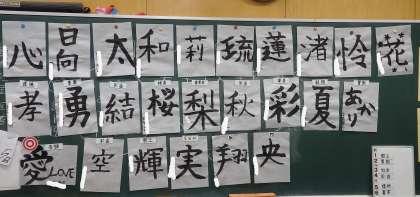 心 日向 太 和 莉 琉 蓮 渚 怜 花
孝 勇 結 桜 梨 秋 彩 夏 あかり
愛 LOVE 空 輝 実 翔 央